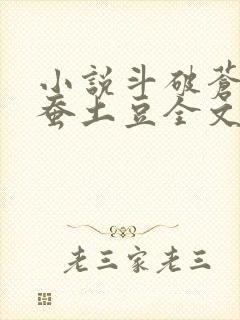 小説斗破蒼
蚕土豆全文
老三家老三